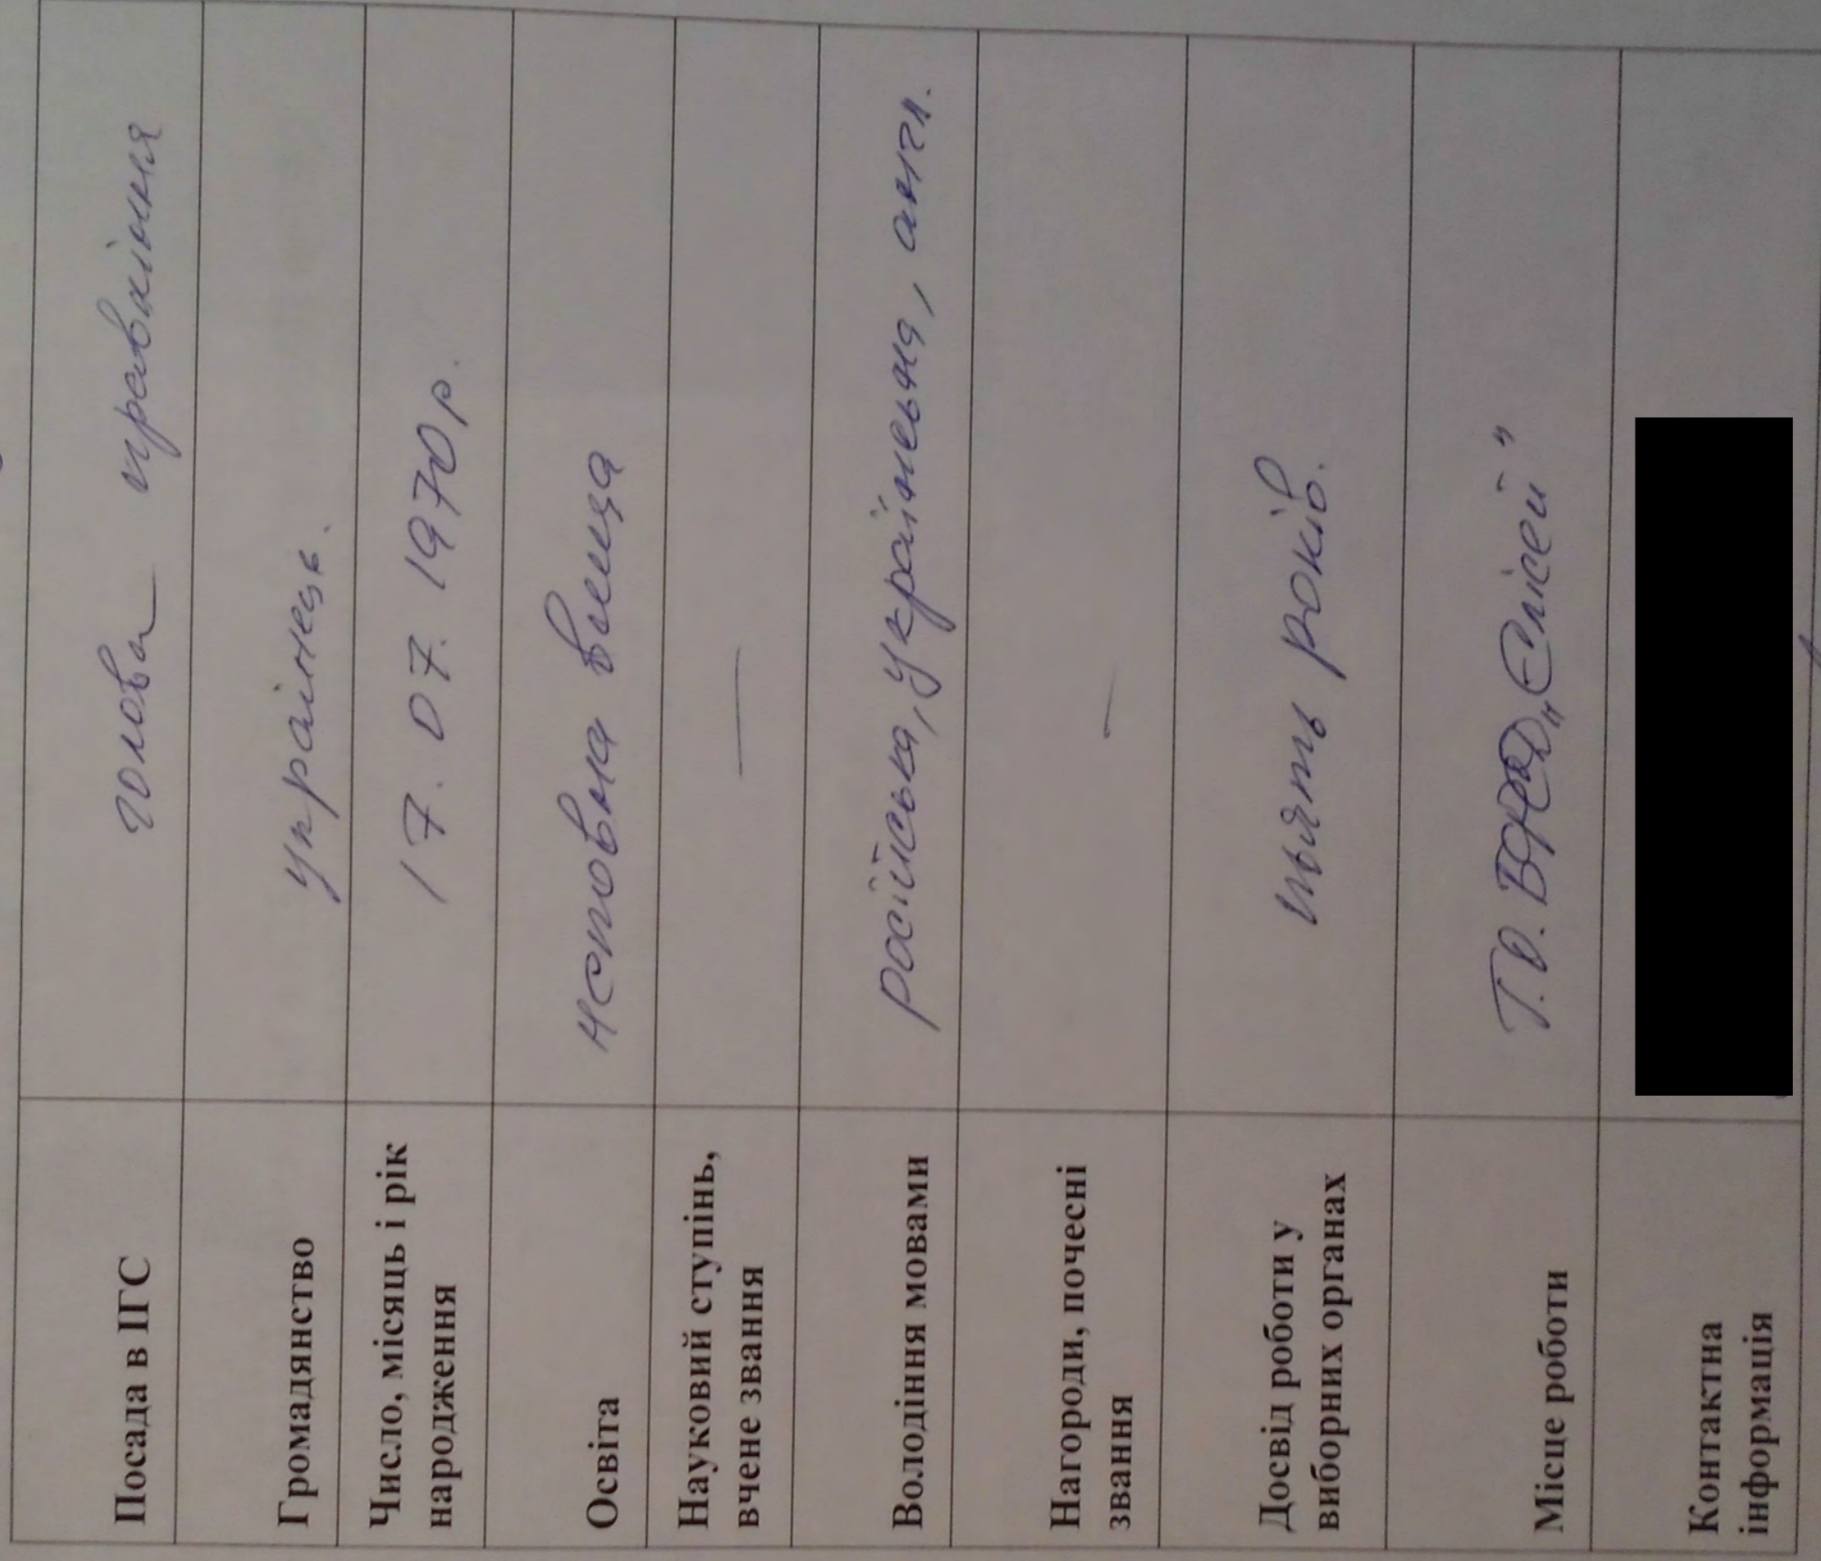 Посада в ІГС голова правління
Громадянство українець.
Число, місяць і рік
народження 17.07.1970р.
Освіта неповна вища
Науковий ступінь,
вчене звання —
Володіння мовами російська, українська, англ.
Нагороди, почесні
звання —
Досвід роботи у
виборних органах п'ять років.
Місце роботи Т.О. „Єлісей"
Контактна
інформація